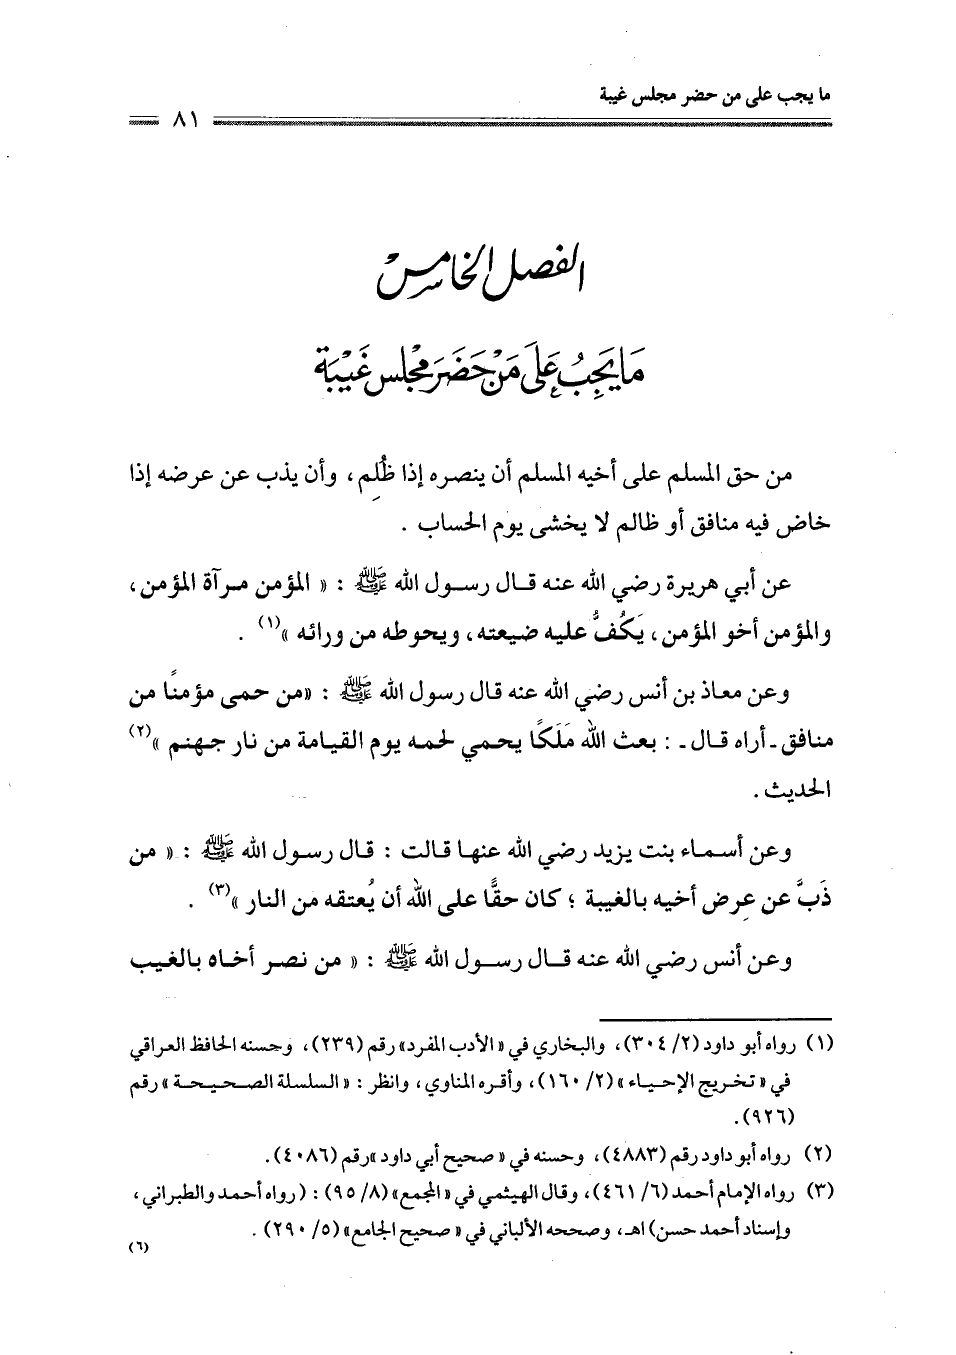 ما يجب على من حضر مجلس غيبة
٨١
الفصل الخامس
مَا يَجِبُ عَلَى مَنْ حَضَرَ مَجْلِسَ غَيْبَة
من حق المسلم على أخيه المسلم أن ينصره إذا ظُلِم، وأن يذب عن عرضه إذا
خاض فيه منافق أو ظالم لا يخشى يوم الحساب .
عن أبي هريرة رضي الله عنه قال رسول الله ﷺ : « المؤمن مرآة المؤمن،
والمؤمن أخو المؤمن، يَكُفُّ عليه ضيعته، ويحوطه من ورائه »(١) .
وعن معاذ بن أنس رضي الله عنه قال رسول الله ﷺ : «من حمى مؤمنًا من
منافق ـ أراه قال ـ : بعث الله مَلَكًا يحمي لحمه يوم القيامة من نار جهنم »(٢)
الحديث .
وعن أسماء بنت يزيد رضي الله عنها قالت : قال رسول الله ﷺ : « من
ذَبَّ عن عِرض أخيه بالغيبة ؛ كان حقًّا على الله أن يُعتقه من النار »(٣) .
وعن أنس رضي الله عنه قال رسول الله ﷺ : « من نصر أخاه بالغيب
(١) رواه أبو داود (٢/ ٣٠٤)، والبخاري في « الأدب المفرد» رقم (٢٣٩)، وحسنه الحافظ العراقي
في « تخريج الإحياء » (٢/ ١٦٠)، وأقره المناوي، وانظر : « السلسلة الصحيحة » رقم
(٩٢٦).
(٢) رواه أبو داود رقم (٤٨٨٣)، وحسنه في « صحيح أبي داود »رقم (٤٠٨٦).
(٣) رواه الإمام أحمد (٦/ ٤٦١)، وقال الهيثمي في « المجمع» (٨/ ٩٥) : (رواه أحمد والطبراني،
وإسناد أحمد حسن) اهـ، وصححه الألباني في « صحيح الجامع» (٥/ ٢٩٠) .
(٦)